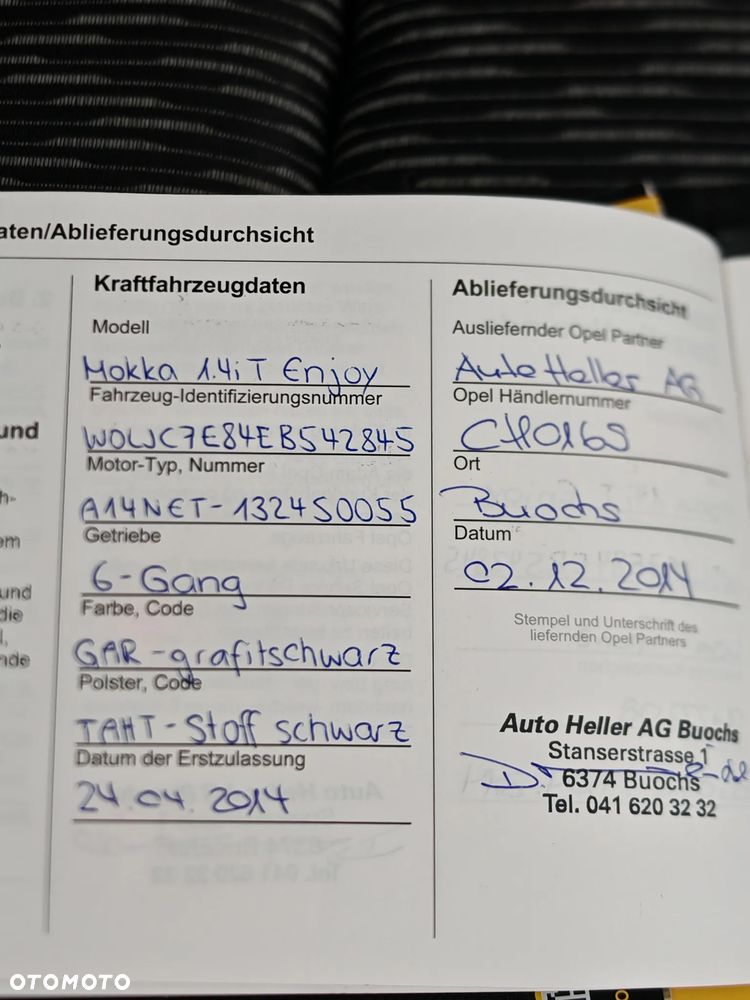 aten/Ablieferungsdurchsicht
Kraftfahrzeugdaten
Modell
Mokka 1.4i T Enjoy
Fahrzeug-Identifizierungsnummer
W0LJC7E84EB542845
Motor-Typ, Nummer
A14NET-132450055
Getriebe
6-Gang
Farbe, Code
GAR-grafitschwarz
Polster, Code
TAHT-Stoff schwarz
Datum der Erstzulassung
24.04.2014
Ablieferungsdurchsicht
Ausliefernder Opel Partner
Auto Heller AG
Opel Händlernummer
CH0165
Ort
Buochs
Datum
02.12.2014
Stempel und Unterschrift des
liefernden Opel Partners
Auto Heller AG Buochs
Stanserstrasse 1
6374 Buochs
Tel. 041 620 32 32
und
em
und
die
nde
OTOMOTO